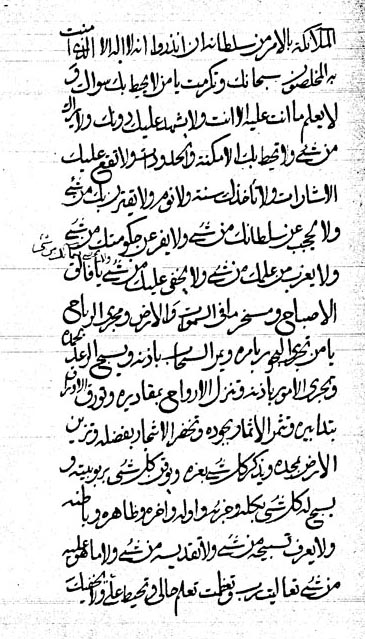 الملائكة بالامر من سلطانه ان انذروا انه لا اله الا الذي امنت
به المخلصون سبحانك وتكرمت يا من لا يحيط بك سواك و
لا يعلم ما انت عليه الا انت ولا يشهد عليك دونك ولا يراك
من شئ ولا تحيط بك الامكنة والحدودات ولا تقع عليك
الاشارات ولا تاخذك سنة ولا نوم ولا يقترن بك من شئ
ولا يحجب عن سلطانك من شئ ولا يفر عن حكومتك من شئ
ولا يعزب من علمك من شئ ولا يخفى عليك من شئ يا فالق
الاصباح ومسخر ما في السموات والارض ومجرى الرياح
يا من تجرى البحر بامره ويمر السحاب باذنه ويسبح الرعد بحمده
وتجرى الامور باذنه وتنزل الارواح بمقاديره وتورق الاوراق
بتدابيره وتثمر الاثمار بجوده وتخضر الاشجار بفضله وتزين
الارض بمجده ويذكر كل شئ بعزه ويوقن كل شئ بربوبيته و
يسبح له كل شئ بكله وجزئه واوله واخره وظاهره وباطنه
ولا يعرف تسبيحه من شئ ولا تقديسه من شئ ولا ما هو عليه
من شئ تعاليت رب وتعظمت تعلم حالى وتحيط على ولا يخفيك